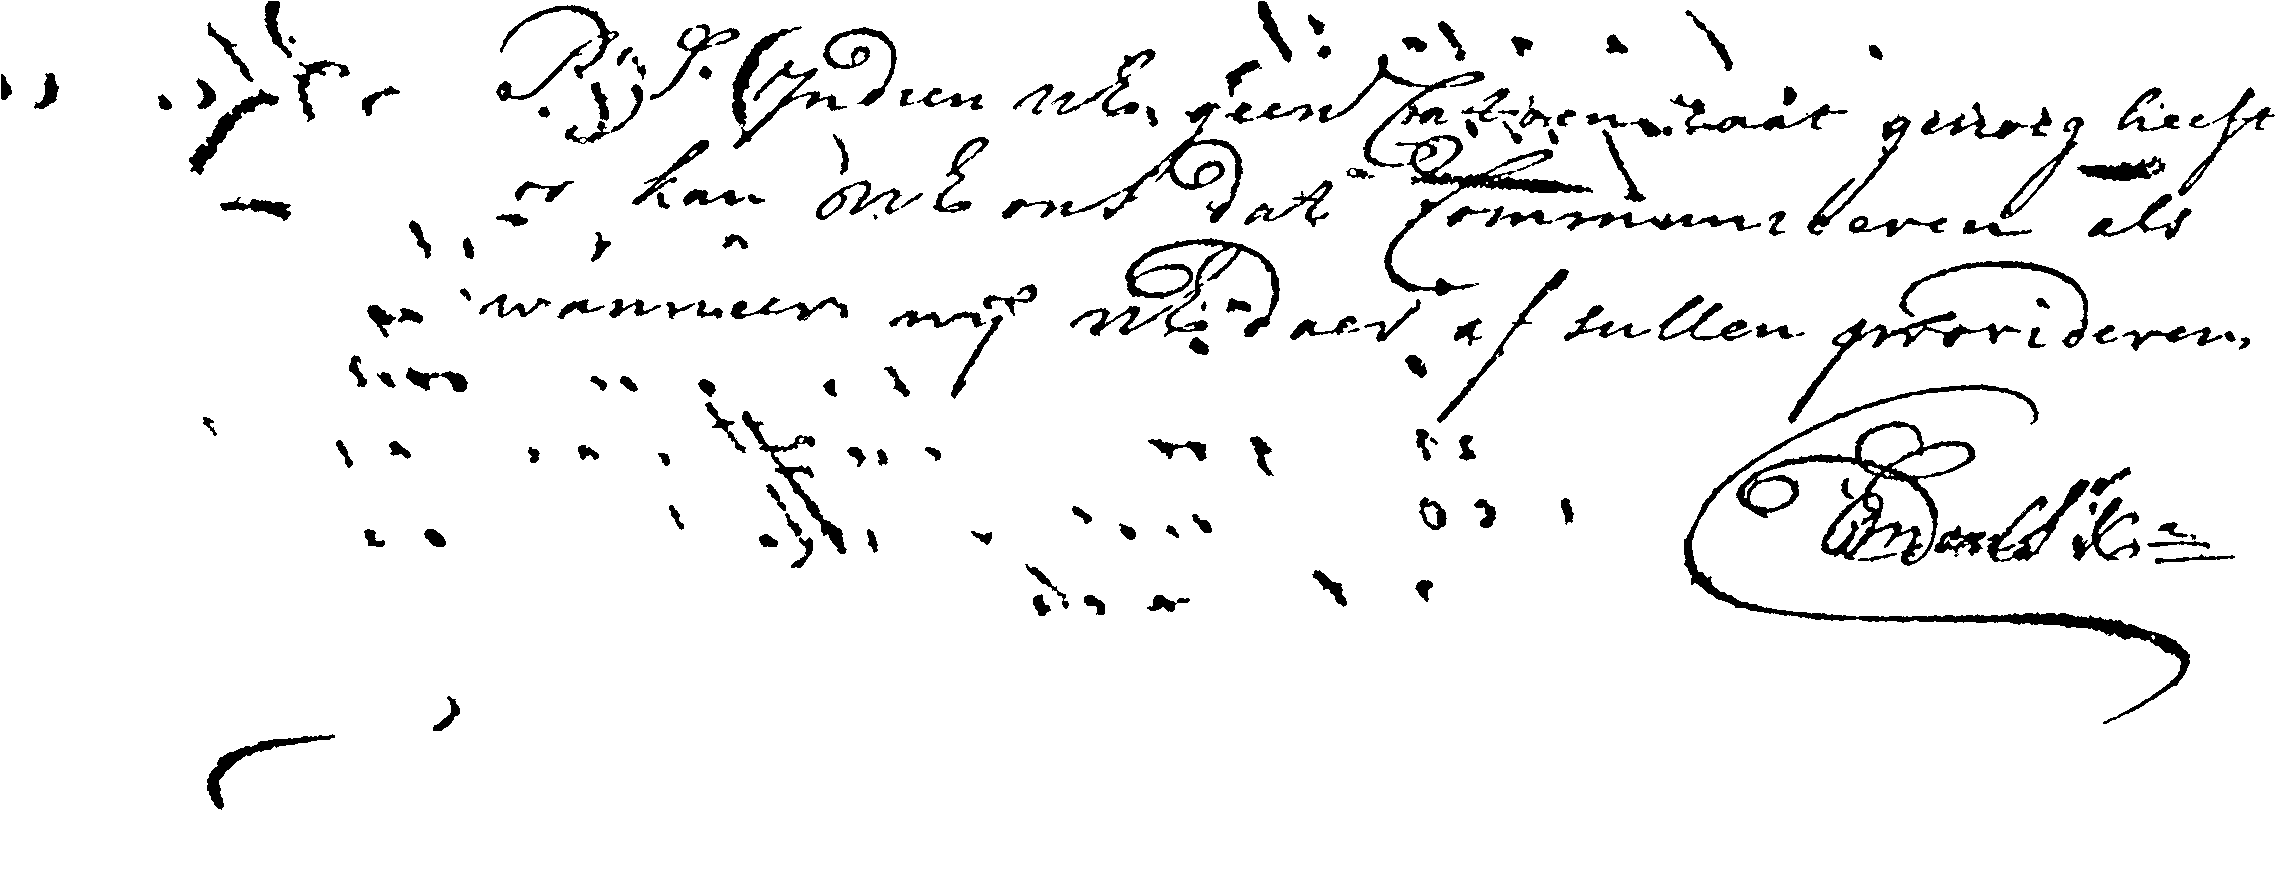 P. S. Indien UE. geen Cattoen zaat genoeg heeft
kan UE ons dat Communiceren als
wanneer wij UE daer af sullen provideren.